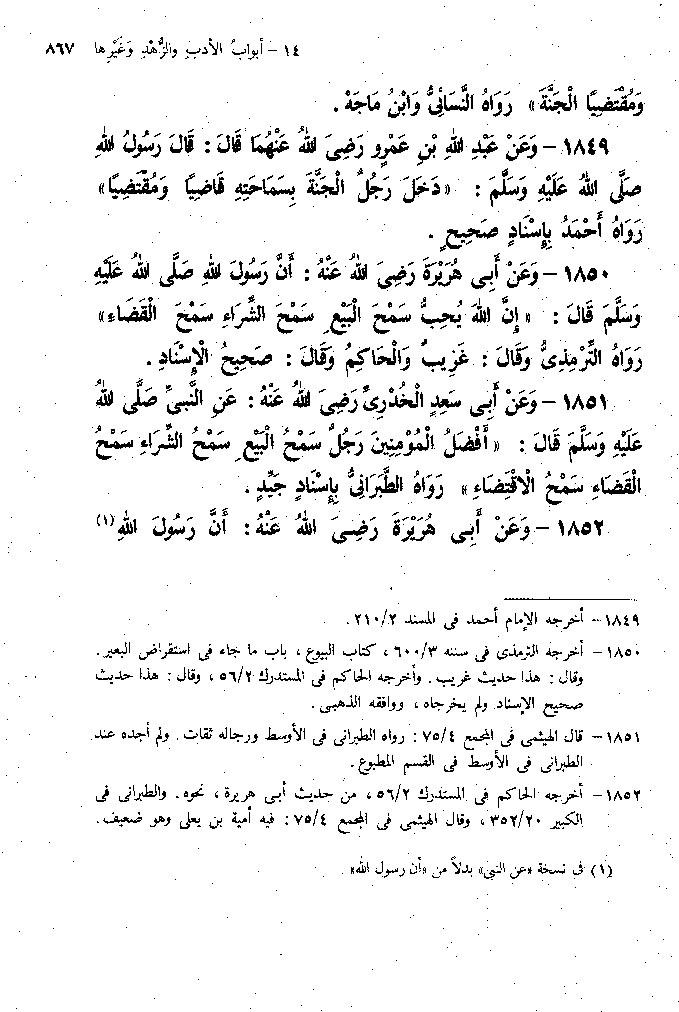 ١٤ - أبوابُ الأدبِ والزُّهْدِ وَغَيْرِها ٨٦٧
وَمُقْتَضِيًا الْجَنَّةَ » رَوَاهُ النَّسَائِىُّ وَابْنُ مَاجَهْ .
١٨٤٩ - وَعَنْ عَبْدِ اللهِ بْنِ عَمْرٍو رَضِىَ اللهُ عَنْهُمَا قَالَ : قَالَ رَسُولُ اللهِ
صَلَّى اللهُ عَلَيْهِ وَسَلَّمَ : « دَخَلَ رَجُلٌ الْجَنَّةَ بِسَمَاحَتِهِ قَاضِيًا وَمُقْتَضِيًا »
رَوَاهُ أَحْمَدُ بِإِسْنَادٍ صَحِيحٍ .
١٨٥٠ - وَعَنْ أَبِى هُرَيْرَةَ رَضِىَ اللهُ عَنْهُ : أَنَّ رَسُولَ اللهِ صَلَّى اللهُ عَلَيْهِ
وَسَلَّمَ قَالَ : « إِنَّ اللهَ يُحِبُّ سَمْحَ الْبَيْعِ سَمْحَ الشِّرَاءِ سَمْحَ الْقَضَاءِ »
رَوَاهُ التِّرْمِذِىُّ وَقَالَ : غَرِيبٌ وَالْحَاكِمُ وَقَالَ : صَحِيحُ الْإِسْنَادِ .
١٨٥١ - وَعَنْ أَبِى سَعِيدٍ الْخُدْرِىِّ رَضِىَ اللهُ عَنْهُ : عَنِ النَّبِىِّ صَلَّى اللهُ
عَلَيْهِ وَسَلَّمَ قَالَ : « أَفْضَلُ الْمُؤْمِنِينَ رَجُلٌ سَمْحُ الْبَيْعِ سَمْحُ الشِّرَاءِ سَمْحُ
الْقَضَاءِ سَمْحُ الْاقْتِضَاءِ » رَوَاهُ الطَّبَرَانِىُّ بِإِسْنَادٍ جَيِّدٍ .
١٨٥٢ - وَعَنْ أَبِى هُرَيْرَةَ رَضِىَ اللهُ عَنْهُ : أَنَّ رَسُولَ اللهِ (١)
١٨٤٩ - أخرجه الإمام أحمد فى المسند ٢١٠/٢ .
١٨٥٠ - أخرجه الترمذى فى سننه ٦٠٠/٣ ، كتاب البيوع ، باب ما جاء فى استقراض البعير .
وقال : هذا حديث غريب . وأخرجه الحاكم فى المستدرك ٥٦/٢ ، وقال : هذا حديث
صحيح الإسناد ولم يخرجاه ، ووافقه الذهبى .
١٨٥١ - قال الهيثمى فى المجمع ٧٥/٤ : رواه الطبرانى فى الأوسط ورجاله ثقات . ولم أجده عند
الطبرانى فى الأوسط فى القسم المطبوع .
١٨٥٢ - أخرجه الحاكم فى المستدرك ٥٦/٢ ، من حديث أبى هريرة ، نحوه . والطبرانى فى
الكبير ٣٥٢/٢٠ ، وقال الهيثمى فى المجمع ٧٥/٤ : فيه أمية بن يعلى وهو ضعيف .
(١) فى نسخة «عن النبى» بدلاً من «أن رسول الله» .